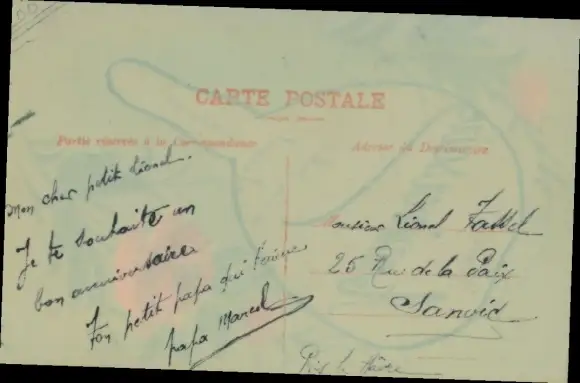 CARTE POSTALE
Partie réservée à la Correspondance
Adresse du Destinataire
Mon cher petit Lionel.
Je te souhaite un
bon anniversaire
Ton petit papa qui t'aime
papa Marcel
Monsieur Lionel
25 Rue de la Paix
Sanvic